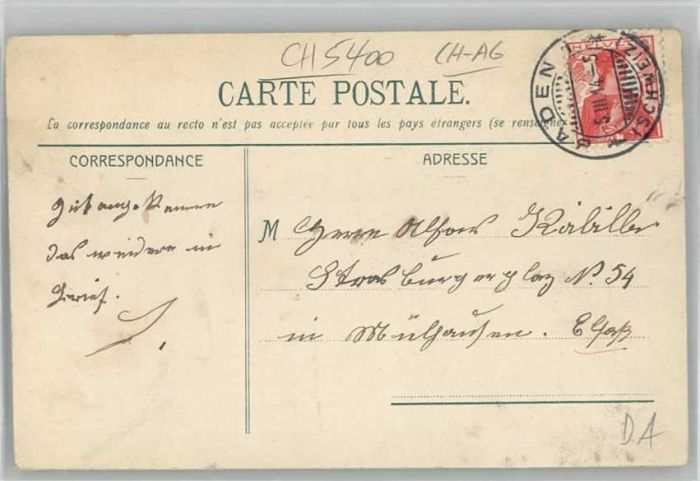 CH 5400 CH-AG
CARTE POSTALE.
La correspondance au recto n'est pas acceptée par tous les pays étrangers (se renseigne
BADEN
(SCHWEIZ)
HELVE
CORRESPONDANCE
ADRESSE
Gut angekommen
das weitere im
Brief.
M Herrn Alfons
Strasburgerplaz No. 54
in Mülhausen. Elsaß
DA